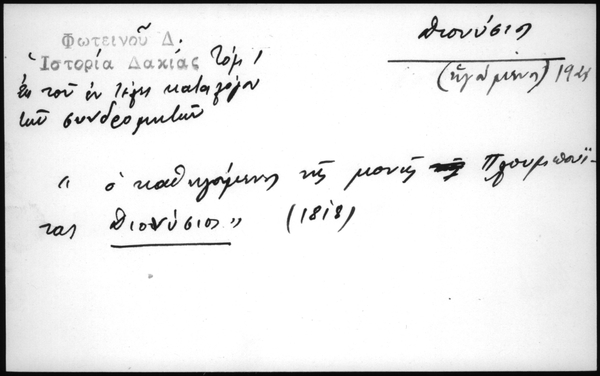 Φωτεινοῦ Δ.
Ἱστορία Δακίας Τόμ 1
ἐκ τοῦ ἐν τέλει καταλόγου
τῶν συνδρομητῶν
Διονύσιος
(ἡγούμενος)
" ὁ καθηγούμενος τῆς μονῆς
τας Διονύσιος" (1818)